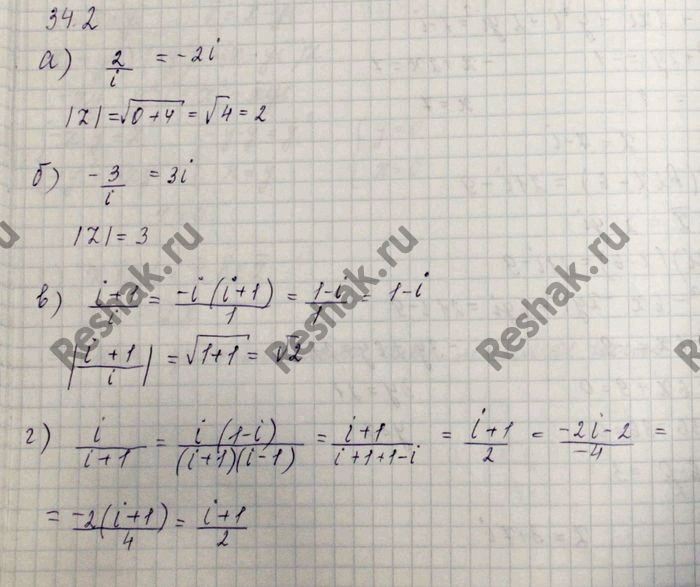 34.2
а) 2/i = -2i
|Z| = √0+4 = √4 = 2
б) -3/i = 3i
|Z| = 3
в) i+1/i = -i(i+1)/1 = 1-i/1 = 1-i
|i+1/i| = √1+1 = √2
г) i/i+1 = i(1-i)/(i+1)(i-1) = i+1/i+1+1-i = i+1/2 = -2i-2/-4 =
= -2(i+1)/4 = i+1/2
Reshak.ru
Reshak.ru
Reshak.ru